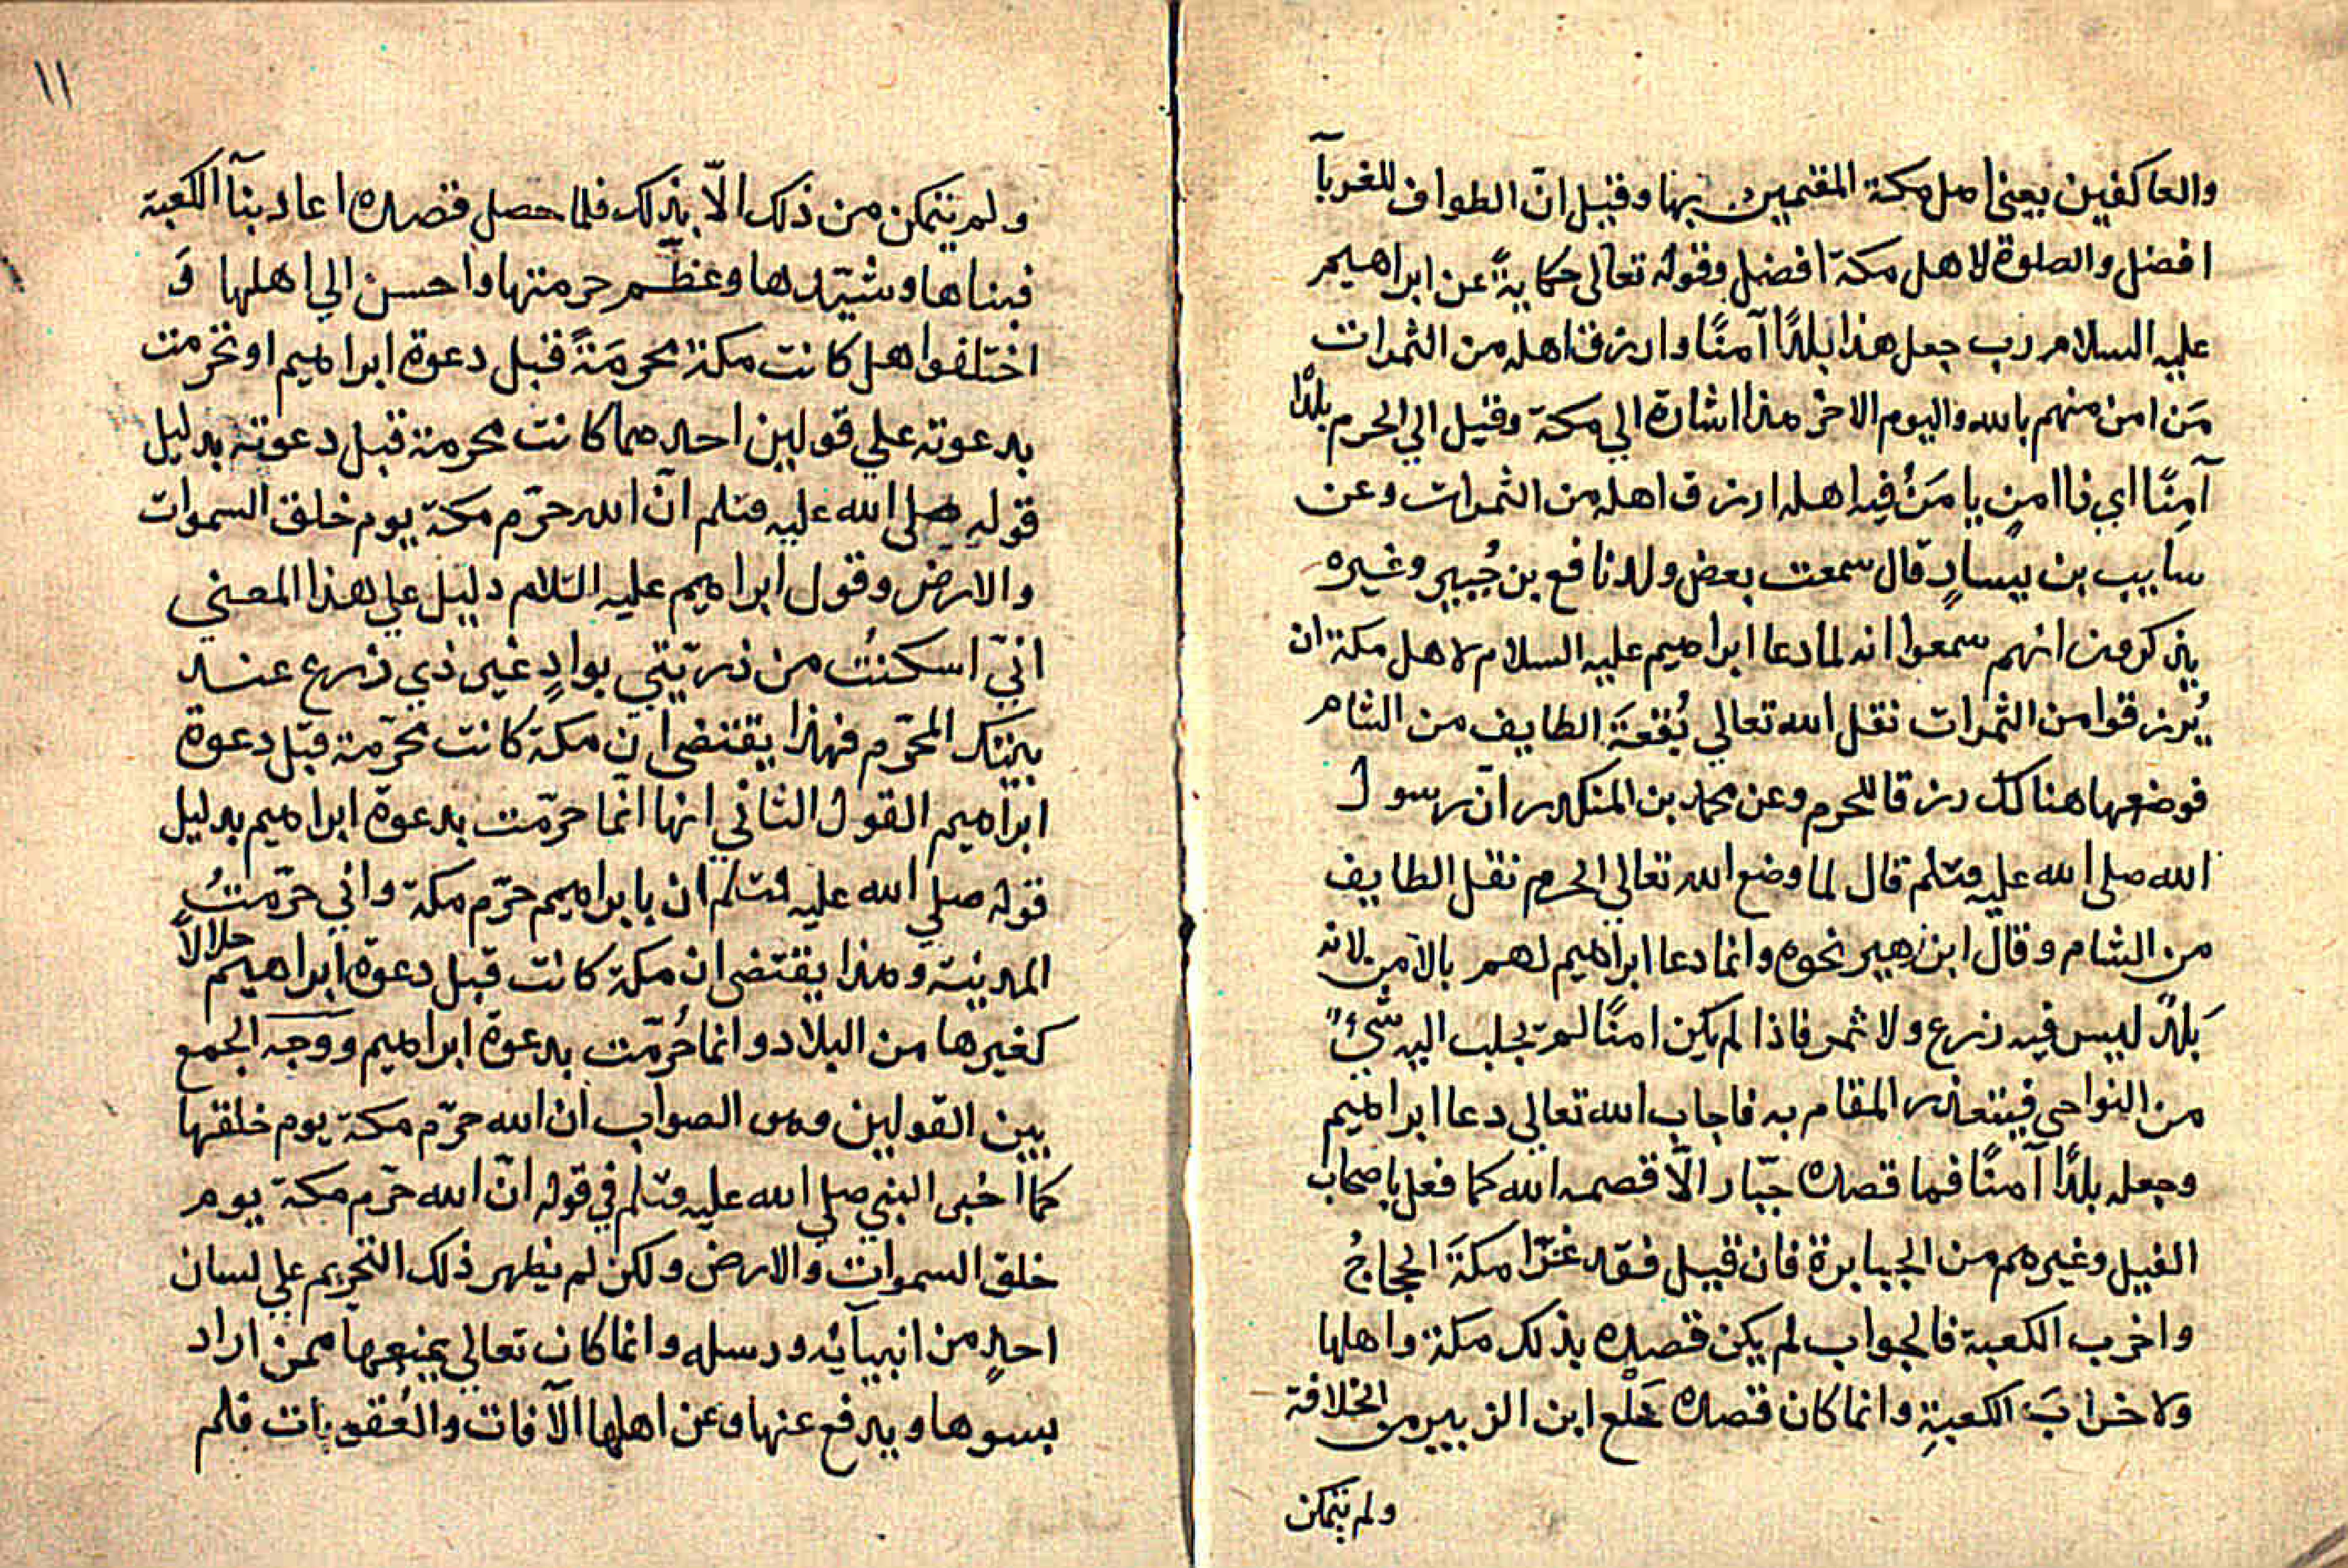 والعاكفين يعني اهل مكة المقيمين بها وقيل انّ الطواف للغربآ
افضل والصلوة لاهل مكة افضل وقوله تعالى حكايةً عن ابراهيم
عليه السلام رب جعل هذا بلدًا آمنًا وارزق اهله من الثمرات
مَن امن منهم بالله واليوم الاخر هذا اشارة الي مكة وقيل الي الحرم بلدًا
آمِنًا اي ذا امنٍ يا مَنُ فيه اهله ارزق اهله من الثمرات وعن
سايب بن يسارٍ قال سمعت بعض ولد نافع بن جُبيرٍ وغيره
يذكرون انهم سمعوا انه لما دعا ابراهيم عليه السلام لاهل مكة ان
يُرزقوا من الثمرات نقل الله تعالي بُقعَةَ الطايف من الشام
فوضعها هنالك رزقا للحرم وعن محمد بن المنكدر انّ رسول
الله صلى الله عليه وسلم قال لما وضع الله تعالي الحرم نقل الطايف
من الشام وقال ابن زهير نحوه وانما دعا ابراهيم لهم بالامن لانه
بَلدٌ ليس فيه زرع ولا ثمر فاذا لم يكن امنًا لم يجلب اليه شيءٌ
من النواحي فيتعذر المقام به فاجاب الله تعالي دعا ابراهيم
وجعله بلدًا آمنًا فما قصده جبّار الّا قصمه الله كما فعل باصحاب
الفيل وغيرهم من الجبابرة فان قيل فقد غزا مكةَ الحجاجُ
واخرب الكعبة فالجواب لم يكن قصده بذلك مكة واهلها
ولا خرابَ الكعبةِ وانما كان قصده خلْع ابن الزبير من الخلافة
ولم يتمكن
١١
ولم يتمكن من ذلك الّا بذلك فلما حصل قصده اعاد بنآ الكعبة
فبناها وشيّدها وعظّم حرمتها واحسن الي اهلها وَ
اختلفوا هل كانت مكة محرمَةً قبل دعوة ابراهيم او تحرمت
بدعوته علي قولين احدهما كانت محرمة قبل دعوته بدليل
قوله صلى الله عليه وسلم انّ الله حرّم مكة يوم خلق السموات
والارض وقول ابراهيم عليه السلام دليل علي هذا المعني
انيّ اسكنتُ من ذريّتي بوادٍ غير ذي زرع عند
بيتك المحرّم فهذا يقتضي ان مكة كانت محرّمة قبل دعوة
ابراهيم القول الثاني انها انما حرّمت بدعوة ابراهيم بدليل
قوله صلي الله عليه وسلم ان بابراهيم حرّم مكة واني حرّمتُ
المدينة وهذا يقتضي ان مكة كانت قبل دعوة ابراهيم حلالاً
كغيرها من البلاد وانما حُرّمت بدعوة ابراهيم ووجه الجمع
بين القولين وهو الصواب ان الله حرّم مكة يوم خلقها
كما اخبر النبي صلي الله عليه وسلم في قوله انّ الله حرّم مكة يوم
خلق السموات والارض ولكن لم يظهر ذلك التحريم علي لسان
احدٍ من انبيآئه ورسله وانما كان تعالي يمنعها ممن اراد
بسوها ويدفع عنها وعن اهلها الآفات والعُقوبات فلم